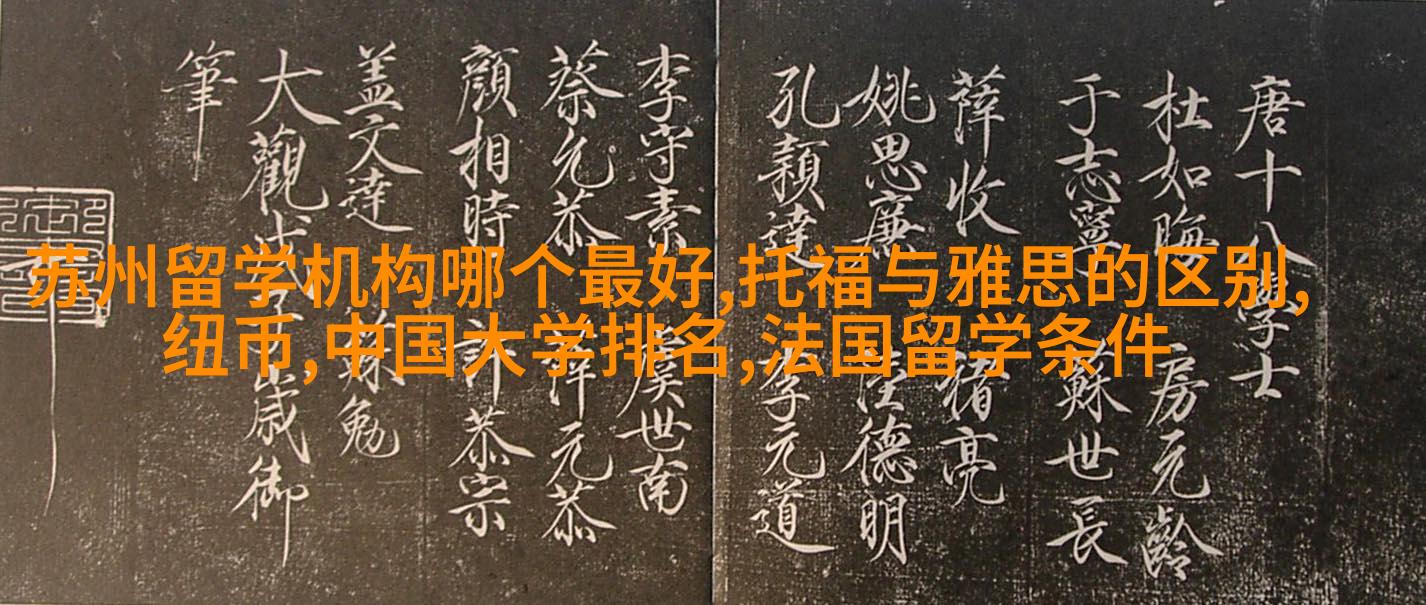 苏州留学机构哪个最好,托福与雅思的区别,
纽币,中国大学排名,法国留学条件
唐十八學士
杜如晦 房元齡
于志寧 蘇世長
薛收 褚亮
姚思廉 陸德明
孔穎達 李元道
李守素 虞世南
蔡允恭 薛元恭
顏相時 許恭宗
盖文達 蘇勉
大觀戊子歲御
筆